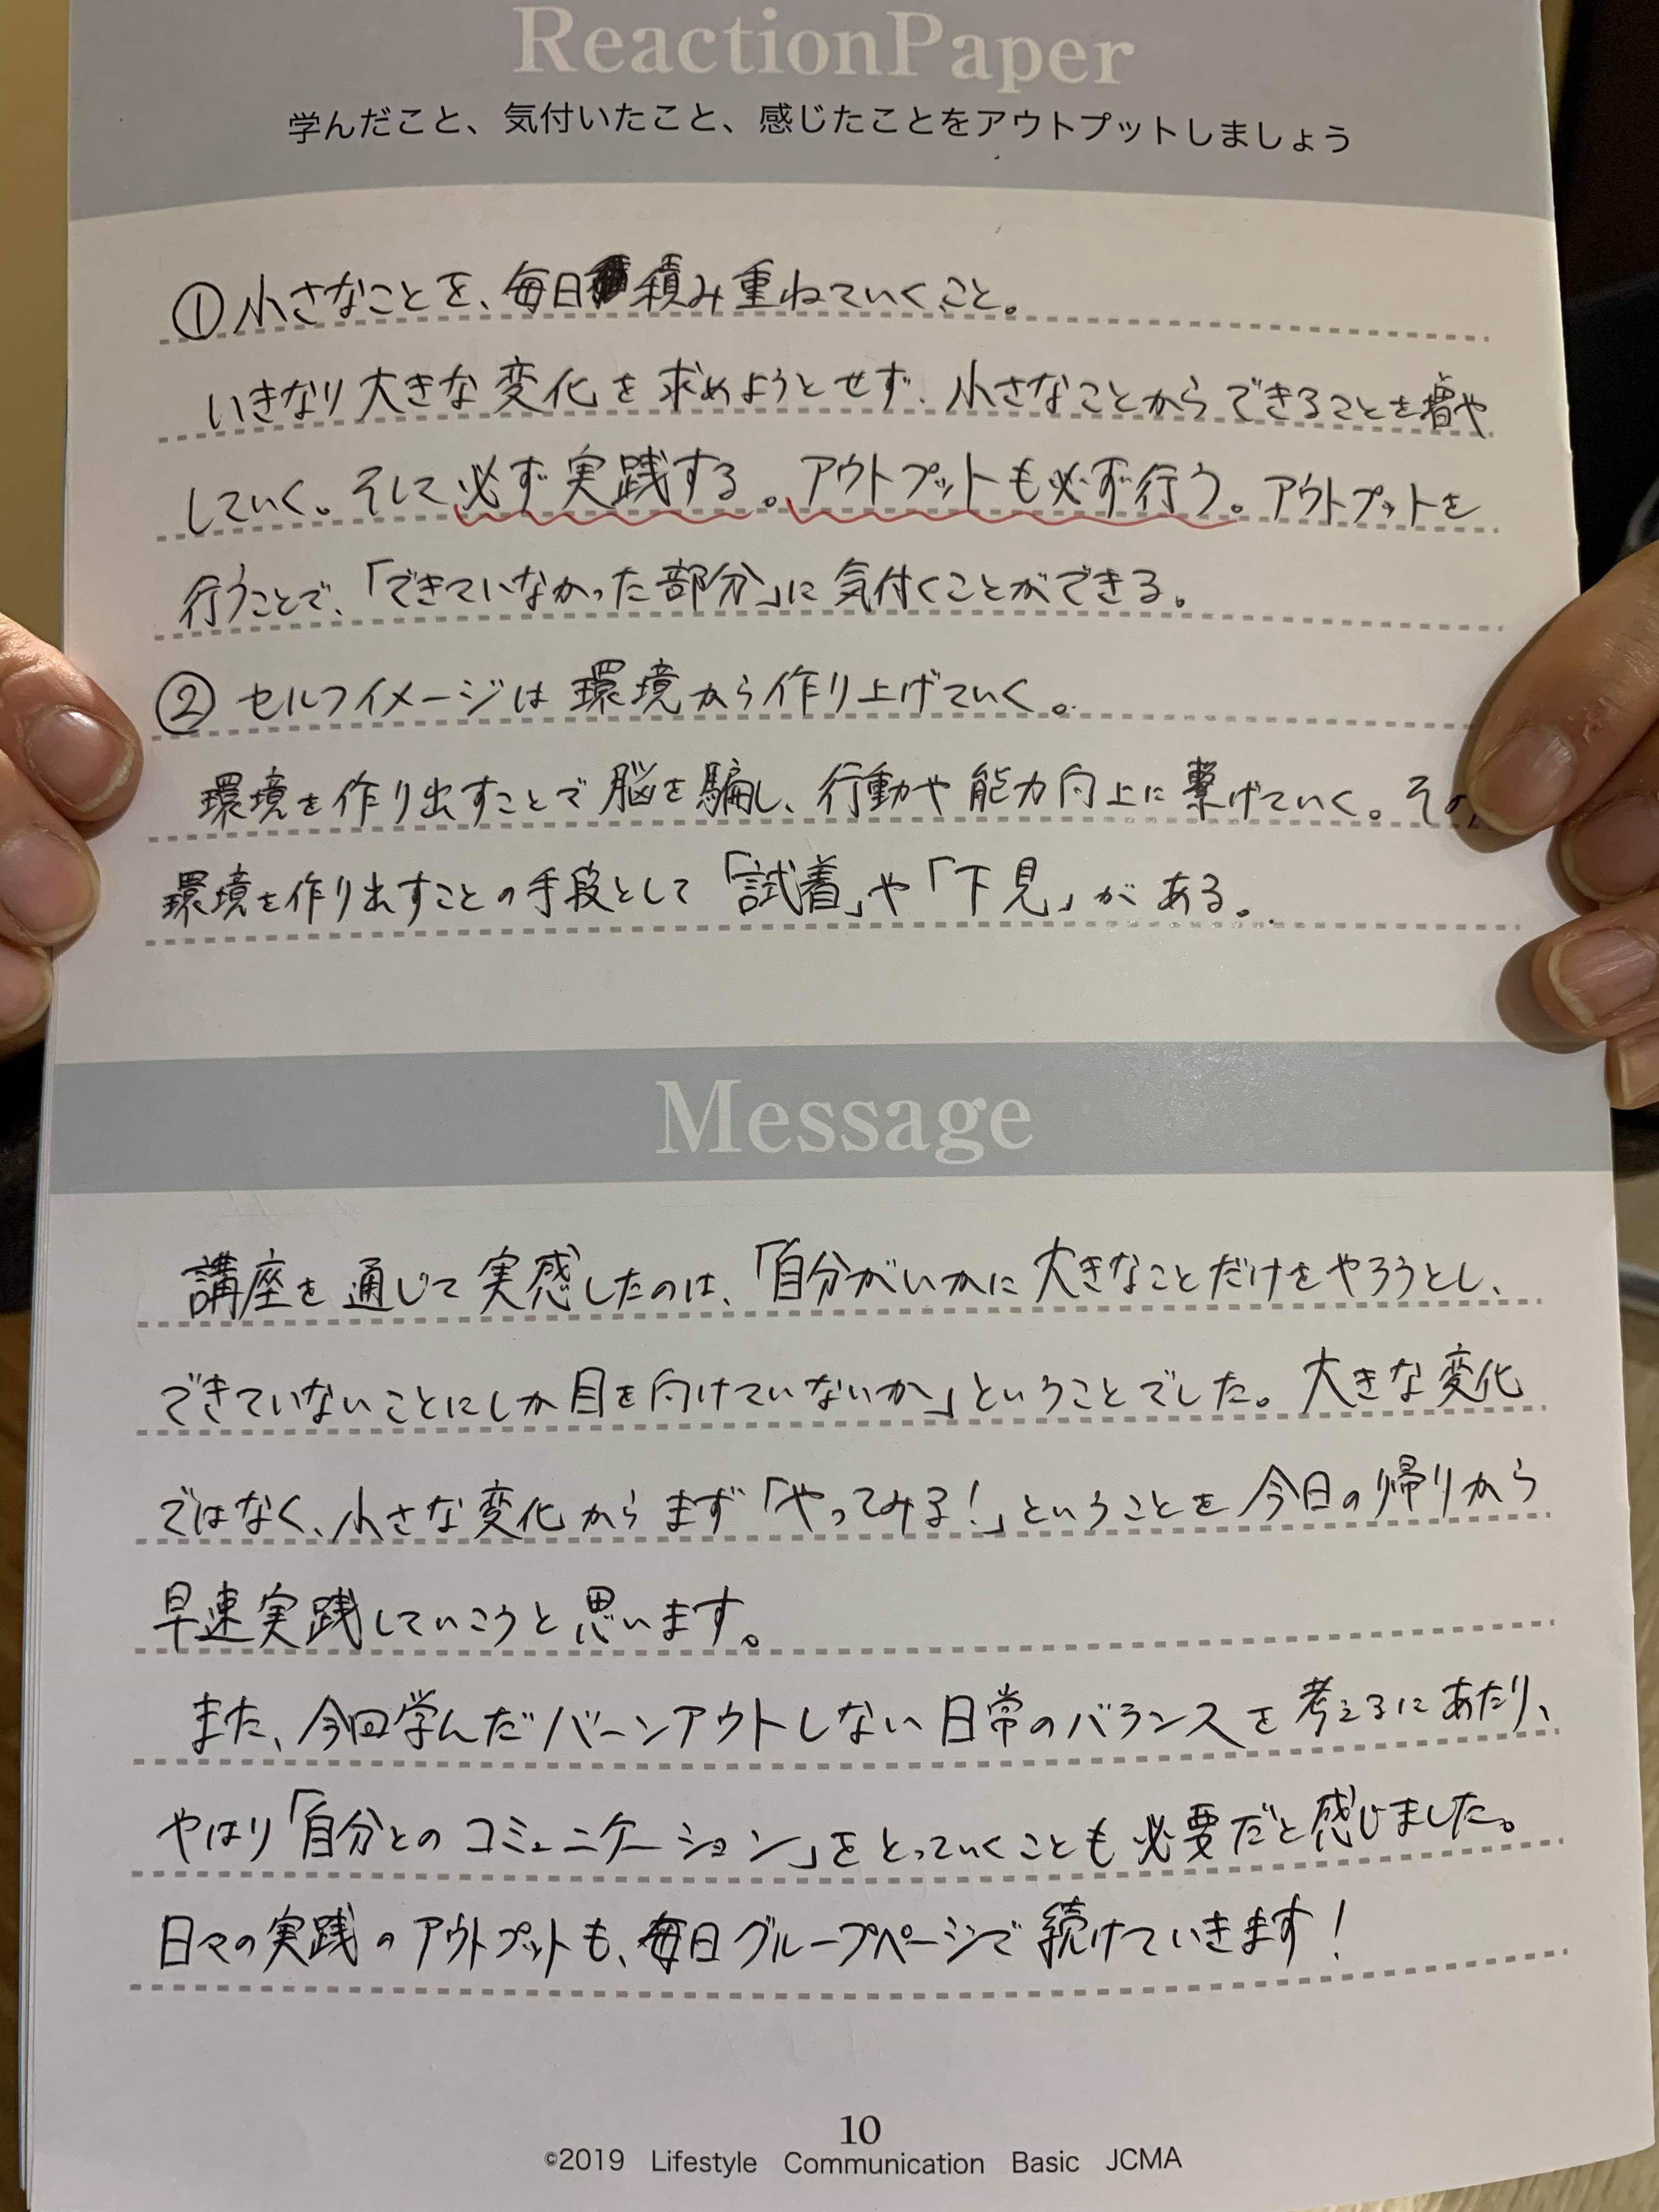 ReactionPaper
学んだこと、気付いたこと、感じたことをアウトプットしましょう
①小さなことを、毎日積み重ねていくこと。
いきなり大きな変化を求めようとせず、小さなことからできることを増や
していく。そして必ず実践する。アウトプットも必ず行う。アウトプットを
行うことで、「できていなかった部分」に気付くことができる。
②セルフイメージは環境から作り上げていく。
環境を作り出すことで脳を騙し、行動や能力向上に繋げていく。その
環境を作り出すことの手段として「試着」や「下見」がある。
Message
講座を通じて実感したのは、「自分がいかに大きなことだけをやろうとし、
できていないことにしか目を向けていないか」ということでした。大きな変化
ではなく、小さな変化からまず「やってみる!」ということを今日の帰りから
早速実践していこうと思います。
また、今回学んだバーンアウトしない日常のバランスを考えるにあたり、
やはり「自分とのコミュニケーション」をとっていくことも必要だと感じました。
日々の実践のアウトプットも、毎日グループページで続けていきます!
10
©2019 Lifestyle Communication Basic JCMA